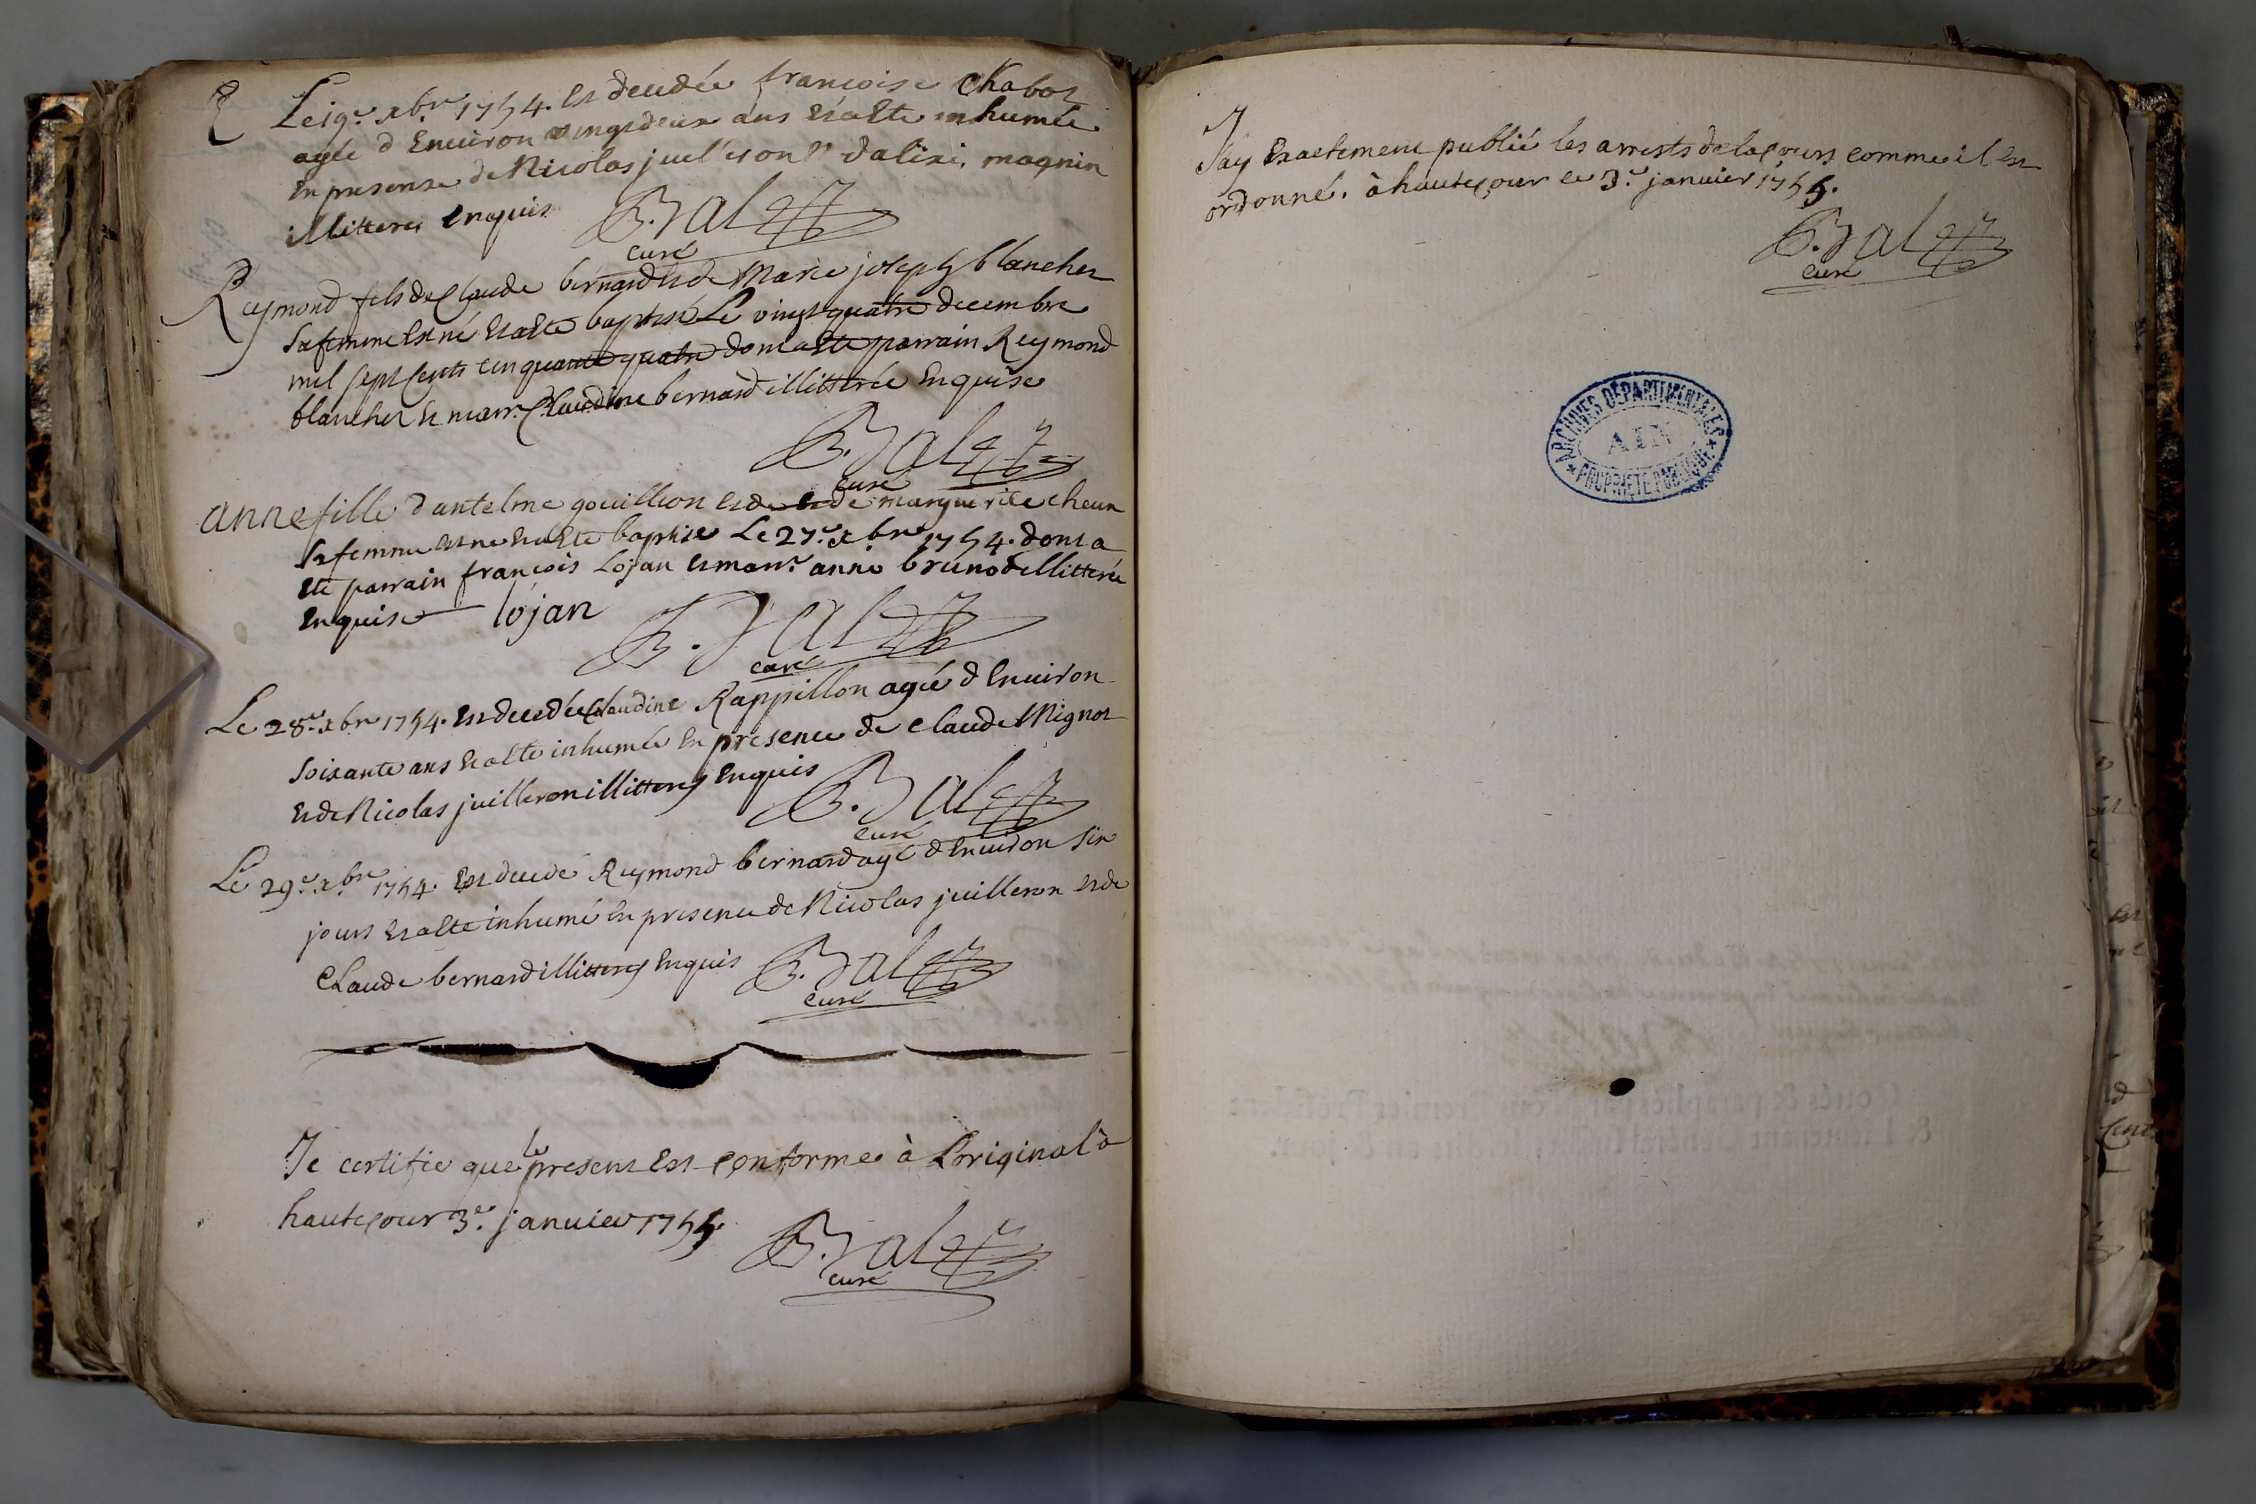 Le 19.e xbre 1754. est decedée francoise chabot
agée d Environ vingt deux ans Et a Eté inhumée
En presense de Nicolas juilleron et d alixi magnin
illitterés Enquis
B. Jalet
curé
Reymond fils de Claude bernard et de Marie joseph blanchet
sa femme Est né Et a Eté baptisé Le vingt quatre decembre
mil sept cents cinquante quatre dont a Eté parrain Reymond
blanchet et marr.e Claudine bernard illitterée Enquise
B. Jalet
curé
anne fille d antelme gouillion et de et de marguerite cheur
sa femme est ne et a Eté baptise Le 27.e xbre 1754. dont a
Eté parrain françois Lojan et marr.e anne brunod illitterée
Enquise lojan
B. Jalet
curé
Le 28.e xbre 1754. est decedée Claudine Rappillon agée d Environ
soixante ans Et a Eté inhumée En presence de claude Mignot
et de Nicolas juilleron illitterés Enquis
B. Jalet
curé
Le 29.e xbre 1754. Est decedé Reymond bernard agé d Environ six
jours Et a Eté inhumé En presence de Nicolas juilleron et de
Claude bernard illitterés Enquis
B. Jalet
curé
Je certifie que le present Est conforme à L'original à
hautecour 3.e janvier 1755.
B. Jalet
curé
J'ay Exactement publié les arrests de la cours comme il est
ordonné. à hautecour ce 3.e janvier 1755.
B. Jalet
curé
ARCHIVES DÉPARTEMENTALES
AIN
PROPRIÉTÉ PUBLIQUE